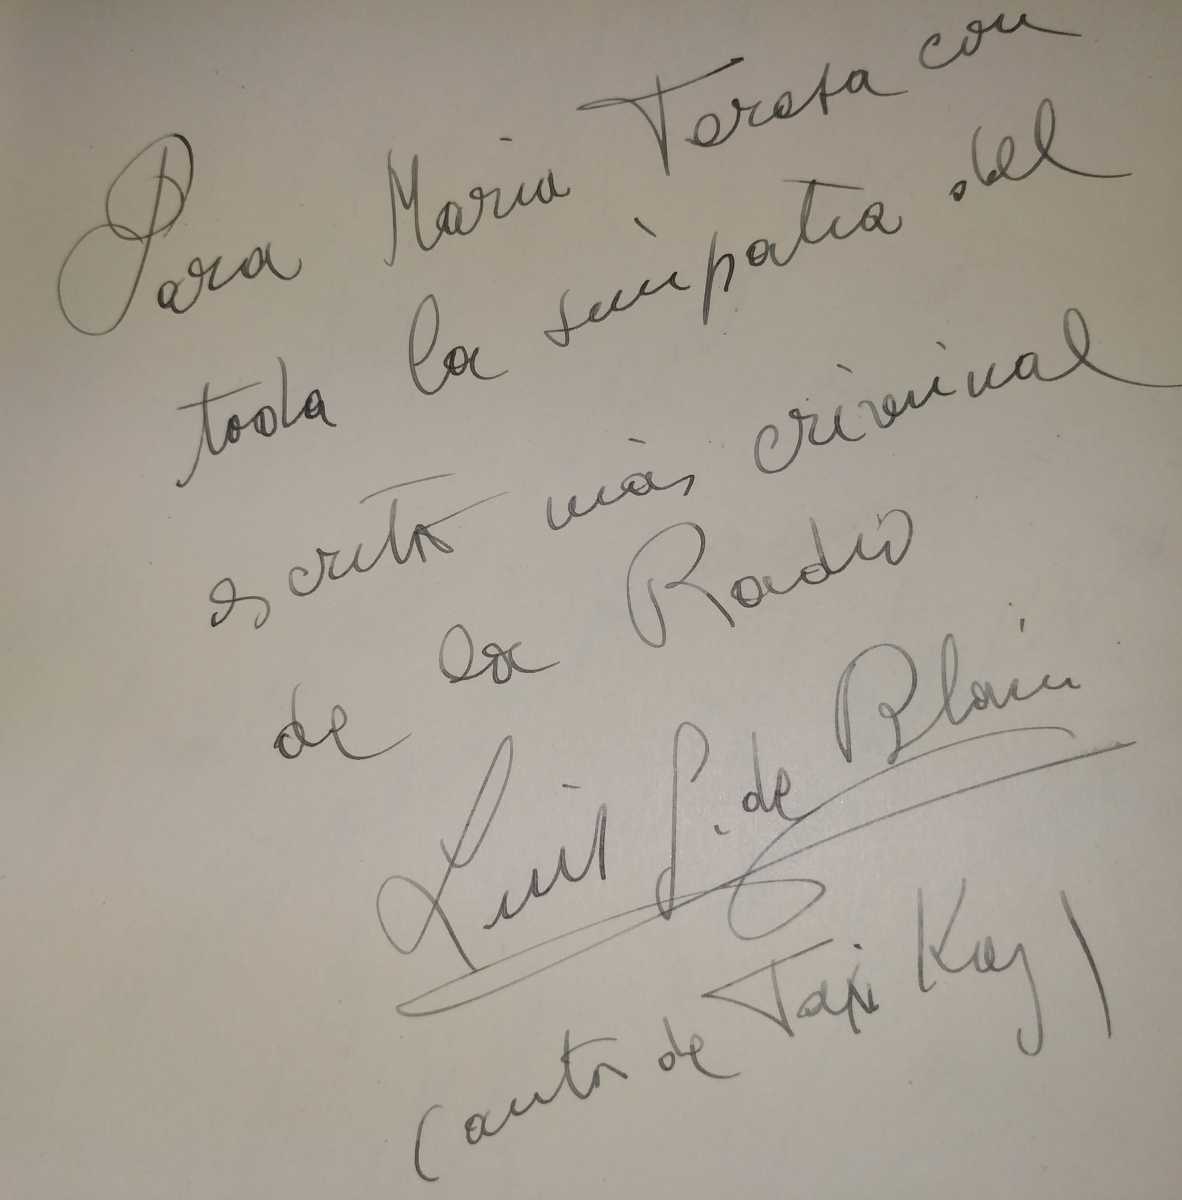 Para Maria Teresa con
toda la simpatia del
escritor más criminal
de la Radio
Luis G. de Blain
(autor de Taxi Key)